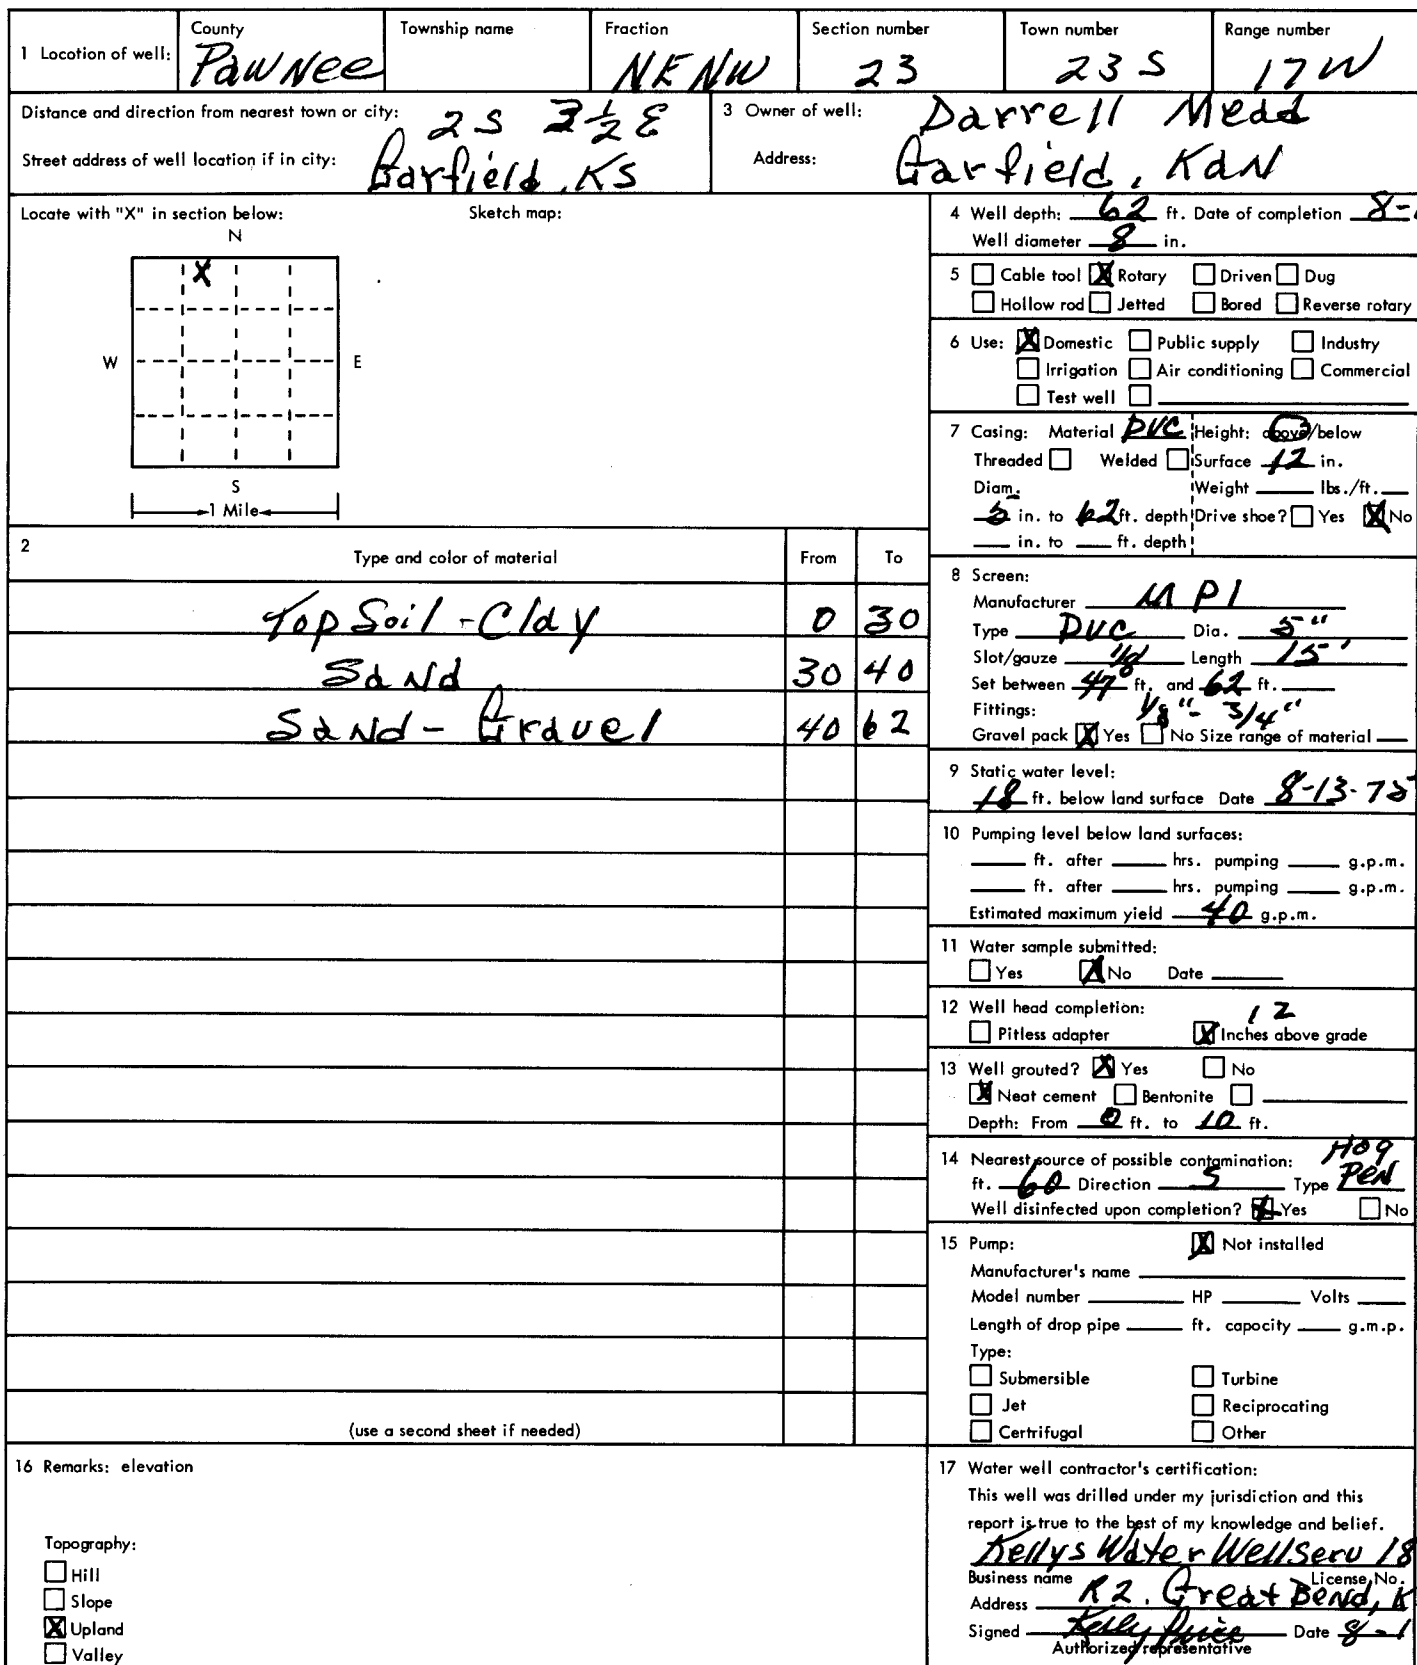 1 Location of well: County Pawnee Township name Fraction NE NW Section number 23 Town number 23 S Range number 17 W
Distance and direction from nearest town or city: 2 S 3 ½ E
Street address of well location if in city: Garfield, KS
3 Owner of well: Darrell Mead
Address: Garfield, Kan
Locate with "X" in section below: Sketch map:
N
X
W E
S
1 Mile
2 Type and color of material From To
Top Soil - Clay 0 30
Sand 30 40
Sand - Gravel 40 62
(use a second sheet if needed)
16 Remarks: elevation
Topography:
Hill
Slope
X Upland
Valley
4 Well depth: 62 ft. Date of completion 8-
Well diameter 8 in.
5 Cable tool X Rotary Driven Dug
Hollow rod Jetted Bored Reverse rotary
6 Use: X Domestic Public supply Industry
Irrigation Air conditioning Commercial
Test well
7 Casing: Material PVC Height: above/below
Threaded Welded Surface 12 in.
Diam. Weight lbs./ft.
5 in. to 62 ft. depth Drive shoe? Yes X No
in. to ft. depth
8 Screen:
Manufacturer MPI
Type PVC Dia. 5"
Slot/gauze 1/8 Length 15'
Set between 47 ft. and 62 ft.
Fittings: 1/8" - 3/4"
Gravel pack X Yes No Size range of material
9 Static water level:
18 ft. below land surface Date 8-13-75
10 Pumping level below land surfaces:
ft. after hrs. pumping g.p.m.
ft. after hrs. pumping g.p.m.
Estimated maximum yield 40 g.p.m.
11 Water sample submitted:
Yes X No Date
12 Well head completion: 12
Pitless adapter X Inches above grade
13 Well grouted? X Yes No
X Neat cement Bentonite
Depth: From 0 ft. to 10 ft.
14 Nearest source of possible contamination: Hog
ft. 60 Direction S Type Pen
Well disinfected upon completion? X Yes No
15 Pump: X Not installed
Manufacturer's name
Model number HP Volts
Length of drop pipe ft. capacity g.m.p.
Type:
Submersible Turbine
Jet Reciprocating
Certrifugal Other
17 Water well contractor's certification:
This well was drilled under my jurisdiction and this
report is true to the best of my knowledge and belief.
Kellys Water Well Serv 18
Business name License No.
Address R 2. Great Bend, K
Signed Kelly Price Date 8-1
Authorized representative